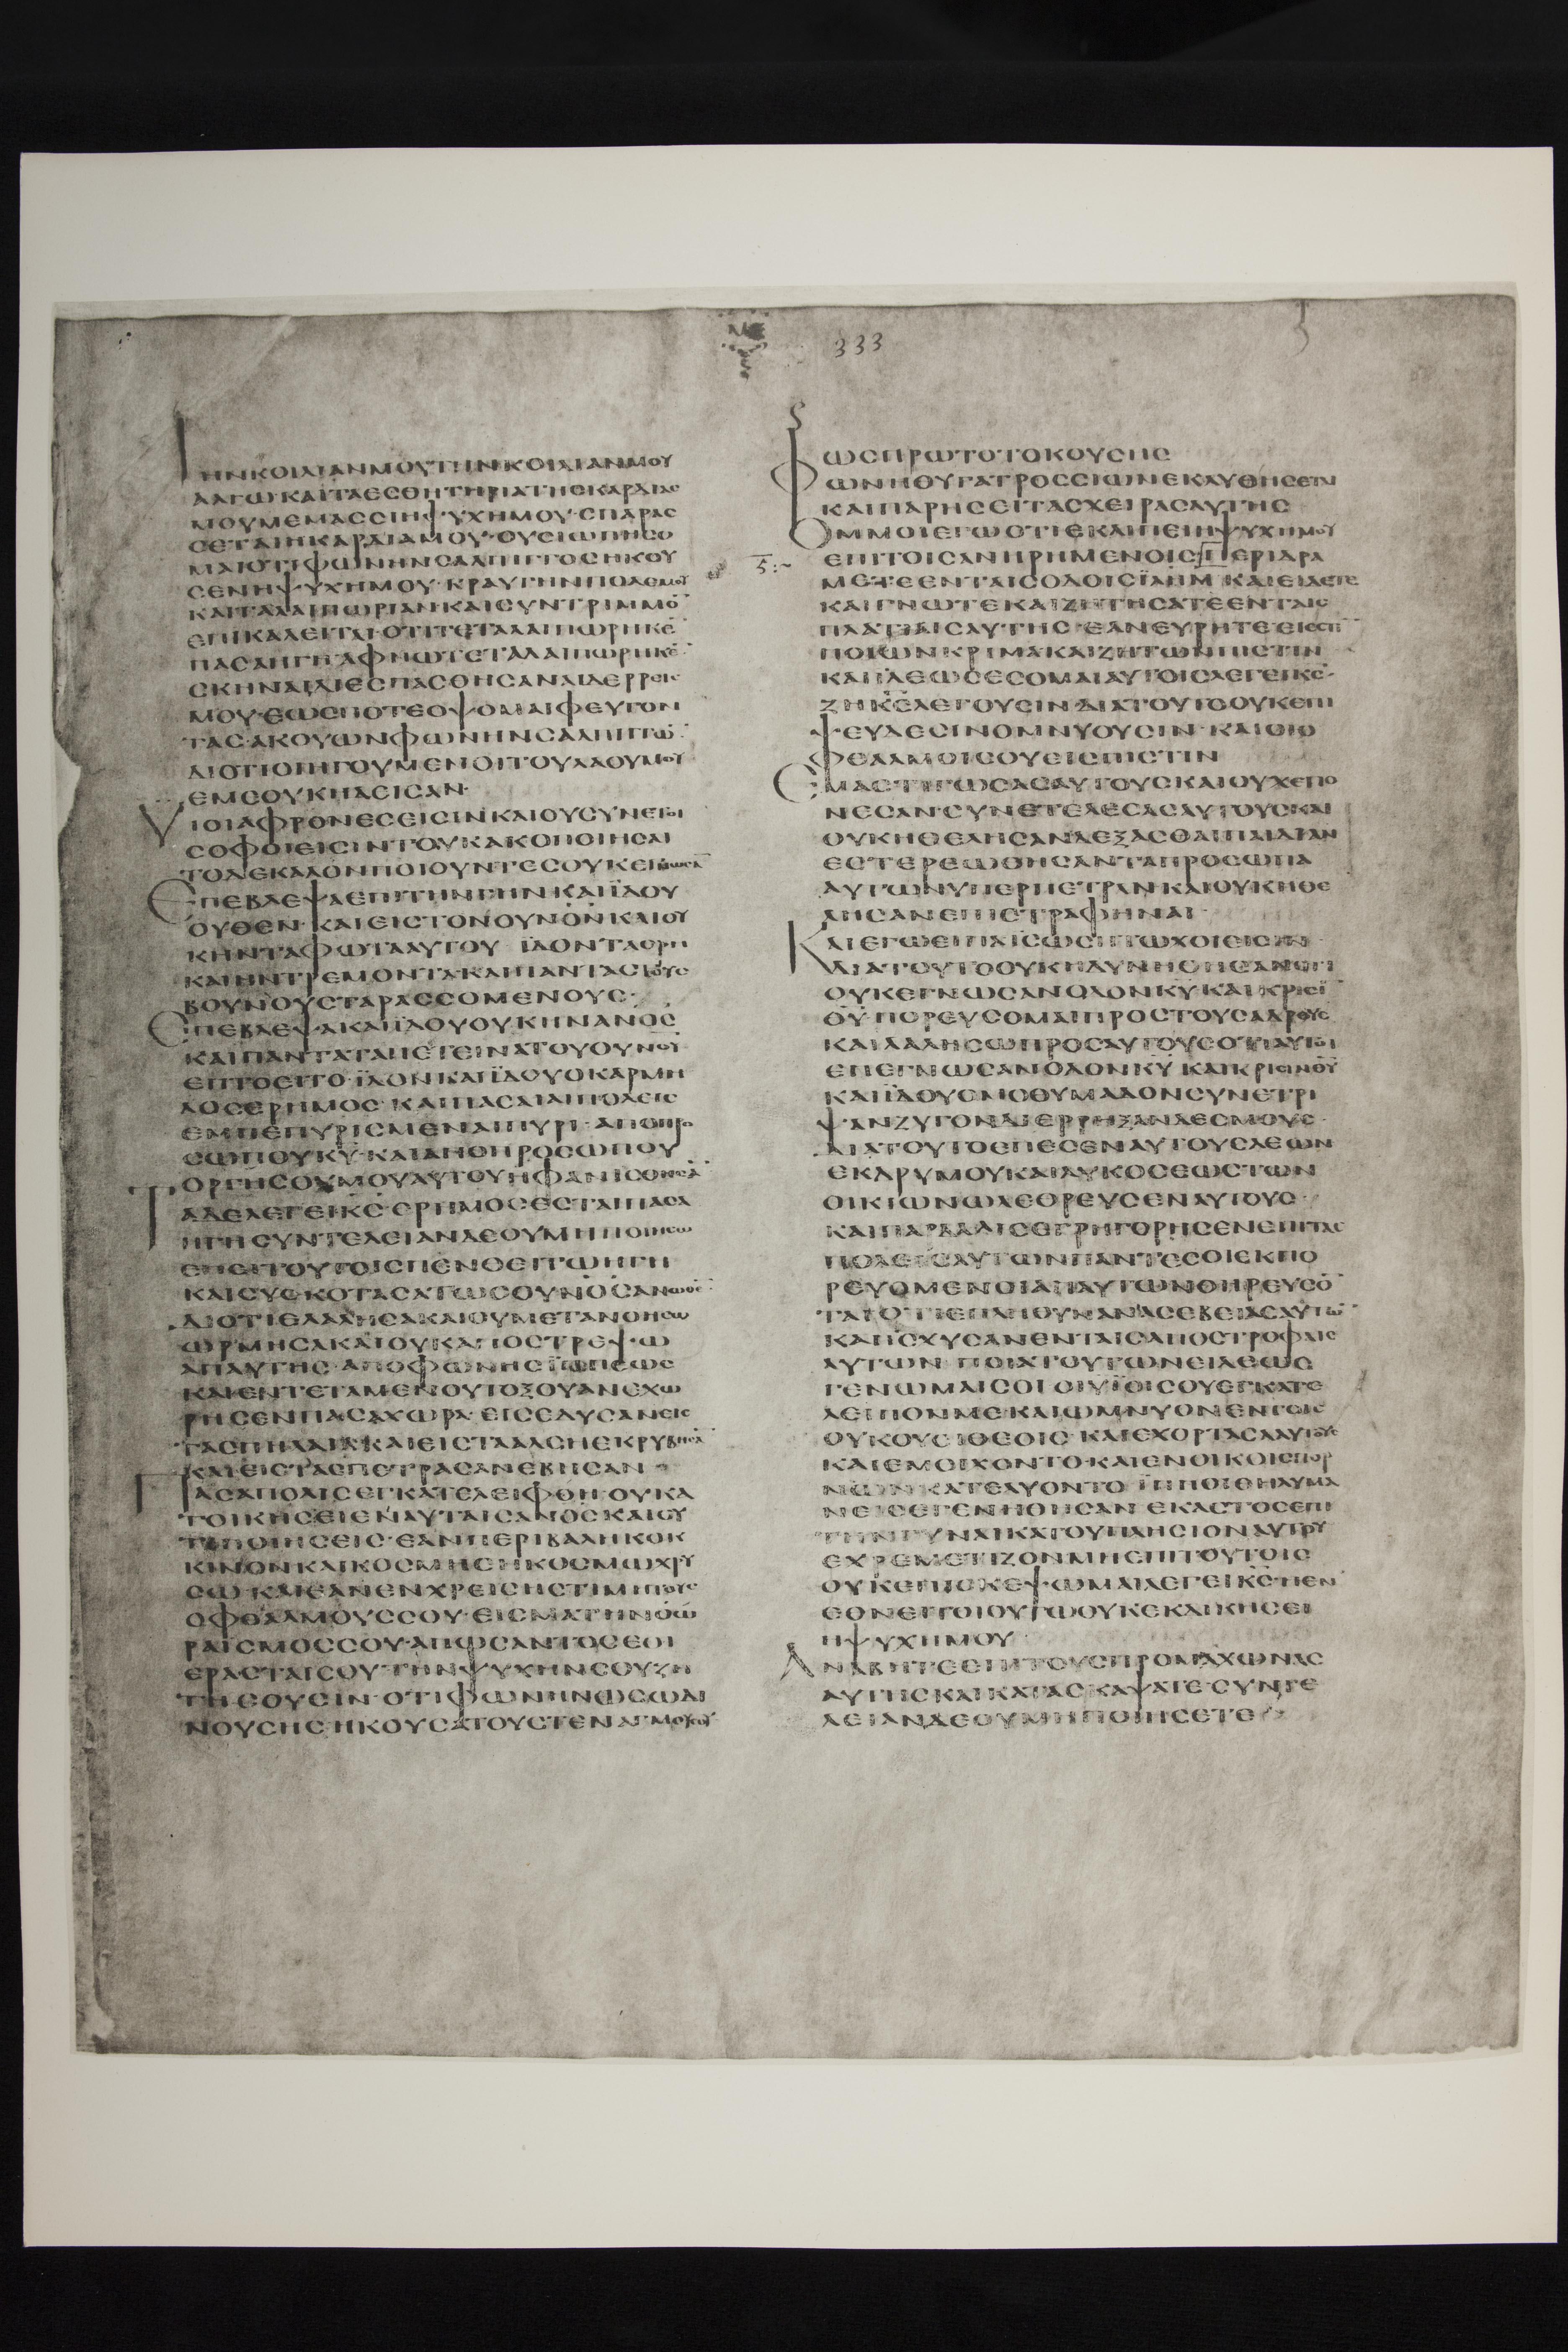 ΤΗΝΚΟΙΛΙΑΝΜΟΥΤΗΝΚΟΙΛΙΑΝΜΟΥ
ΑΛΓΩ·ΚΑΙΤΑΕϹΘΗΤΗΡΙΑΤΗϹΚΑΡΔΙΑϹ
ΜΟΥΜΕΜΑϹϹΙΗΨΥΧΗΜΟΥ·ϹΠΑΡΑϹ
ϹΕΤΑΙΗΚΑΡΔΙΑΜΟΥ·ΟΥϹΙΩΠΗϹΟ
ΜΑΙΟΤΙΦΩΝΗΝϹΑΛΠΙΓΓΟϹΗΚΟΥ
ϹΕΝΗΨΥΧΗΜΟΥ·ΚΡΑΥΓΗΝΠΟΛΕΜΟΥ
ΚΑΙΤΑΛΑΙΠΩΡΙΑΝΚΑΙϹΥΝΤΡΙΜΜΟ̅
ΕΠΙΚΑΛΕΙΤΑΙ·ΟΤΙΤΕΤΑΛΑΙΠΩΡΗΚΕ̅
ΠΑϹΑΗΓΗ·ΑΦΝΩΤΕΤΑΛΑΙΠΩΡΗΚΕ̅
ϹΚΗΝΑΙΔΙΕϹΠΑϹΘΗϹΑΝΑΙΔΕΡΡΕΙϹ
ΜΟΥ·ΕΩϹΠΟΤΕΟΨΟΜΑΙΦΕΥΓΟΝ
ΤΑϹ·ΑΚΟΥΩΝΦΩΝΗΝϹΑΛΠΙΓΓΩ̅
ΔΙΟΤΙΟΙΗΓΟΥΜΕΝΟΙΤΟΥΛΑΟΥΜΟΥ
ΕΜΕΟΥΚΗΔΙϹΑΝ·
ΥΙΟΙΑΦΡΟΝΕϹΕΙϹΙΝΚΑΙΟΥϹΥΝΕΤΟΙ
ϹΟΦΟΙΕΙϹΙΝΤΟΥΚΑΚΟΠΟΙΗϹΑΙ
ΤΟΔΕΚΑΛΟΝΠΟΙΟΥΝΤΕϹΟΥΚΕΓΝΩϹΑ̅
ΕΠΕΒΛΕΨΑΕΠΙΤΗΝΓΗΝΚΑΙΪΔΟΥ
ΟΥΘΕΝ·ΚΑΙΕΙϹΤΟΝΟΥΝΟΝΚΑΙΟΥ
ΚΗΝΤΑΦΩΤΑΑΥΤΟΥ·ΪΔΟΝΤΑΟΡΗ
ΚΑΙΗΝΤΡΕΜΟΝΤΑΚΑΙΠΑΝΤΑϹΤΟΥϹ
ΒΟΥΝΟΥϹΤΑΡΑϹϹΟΜΕΝΟΥϹ·
ΕΠΕΒΛΕΨΑΚΑΙΪΔΟΥΟΥΚΗΝΑΝΟϹ
ΚΑΙΠΑΝΤΑΤΑΠΕΤΕΙΝΑΤΟΥΟΥΝΟΥ
ΕΠΤΟΕΙΤΟ·ΪΔΟΝΚΑΙΪΔΟΥΟΚΑΡΜΗ
ΛΟϹΕΡΗΜΟϹ·ΚΑΙΠΑϹΑΙΑΙΠΟΛΕΙϹ
ΕΜΠΕΠΥΡΙϹΜΕΝΑΙΠΥΡΙ·ΑΠΟΠΡΟ
ϹΩΠΟΥΚΥ·ΚΑΙΑΠΟΠΡΟϹΩΠΟΥ
ΟΡΓΗϹΘΥΜΟΥΑΥΤΟΥΗΦΑΝΙϹΘΗϹΑ̅
ΤΑΔΕΛΕΓΕΙΚϹ·ΕΡΗΜΟϹΕϹΤΑΙΠΑϹΑ
ΗΓΗϹΥΝΤΕΛΕΙΑΝΔΕΟΥΜΗΠΟΙΗϹΩ
ΕΠΕΙΤΟΥΤΟΙϹΠΕΝΘΕΙΤΩΗΓΗ
ΚΑΙϹΥϹΚΟΤΑϹΑΤΩϹΟΥΝΟϹΑΝΩΘΕ̅
ΔΙΟΤΙΕΛΑΛΗϹΑΚΑΙΟΥΜΕΤΑΝΟΗϹΩ
ΩΡΜΗϹΑΚΑΙΟΥΚΑΠΟϹΤΡΕΨΩ
ΑΠΑΥΤΗϹ·ΑΠΟΦΩΝΗϹΪΠΠΕΩϹ
ΚΑΙΕΝΤΕΤΑΜΕΝΟΥΤΟΞΟΥΑΝΕΧΩ
ΡΗϹΕΝΠΑϹΑΧΩΡΑ·ΕΙϹΕΔΥϹΑΝΕΙϹ
ΤΑϹΠΗΛΑΙΑΚΑΙΕΙϹΤΑΑΛϹΗΕΚΡΥΒΗϹΑ̅
ΚΑΙΕΙϹΤΑϹΠΕΤΡΑϹΑΝΕΒΗϹΑΝ
ΠΑϹΑΠΟΛΙϹΕΓΚΑΤΕΛΕΙΦΘΗ·ΟΥΚΑ
ΤΟΙΚΗϹΕΙΕΝΑΥΤΑΙϹΑΝΟϹΚΑΙϹΥ
ΤΙΠΟΙΗϹΕΙϹ·ΕΑΝΠΕΡΙΒΑΛΗΚΟΚ
ΚΙΝΟΝΚΑΙΚΟϹΜΗϹΗΚΟϹΜΩΧΡΥ
ϹΩ·ΚΑΙΕΑΝΕΝΧΡΕΙϹΗϹΤΙΜΙΤΟΥϹ
ΟΦΘΑΛΜΟΥϹϹΟΥ·ΕΙϹΜΑΤΗΝΟΩ
ΡΑΙϹΜΟϹϹΟΥ·ΑΠΩϹΑΝΤΟϹΕΟΙ
ΕΡΑϹΤΑΙϹΟΥ·ΤΗΝΨΥΧΗΝϹΟΥΖΗ
ΤΗϹΟΥϹΙΝ·ΟΤΙΦΩΝΗΝΩϹΩΔΙ
ΝΟΥϹΗϹΗΚΟΥϹΑΤΟΥϹΤΕΝΑΓΜΟΥϹΟΥ
333
ΩϹΠΡΩΤΟΤΟΚΟΥϹΗϹ
ΦΩΝΗΘΥΓΑΤΡΟϹϹΙΩΝΕΚΛΥΘΗϹΕΤΑΙ
ΚΑΙΠΑΡΗϹΕΙΤΑϹΧΕΙΡΑϹΑΥΤΗϹ
ΟΜΜΟΙΕΓΩΟΤΙΕΚΛΙΠΕΙΗΨΥΧΗΜΟΥ
ΕΠΙΤΟΙϹΑΝΗΡΗΜΕΝΟΙϹ·ΠΕΡΙΔΡΑ
ΜΕΤΕΕΝΤΑΙϹΟΔΟΙϹΪΛΗΜ·ΚΑΙΕΙΔΕΤΕ
ΚΑΙΓΝΩΤΕΚΑΙΖΗΤΗϹΑΤΕΕΝΤΑΙϹ
ΠΛΑΤΙΑΙϹΑΥΤΗϹ·ΕΑΝΕΥΡΗΤΕΕΙΕϹΤΙ̅
ΠΟΙΩΝΚΡΙΜΑΚΑΙΖΗΤΩΝΠΙϹΤΙΝ
ΚΑΙΪΛΕΩϹΕϹΟΜΑΙΑΥΤΟΙϹΛΕΓΕΙΚϹ·
ΖΗΚϹΛΕΓΟΥϹΙΝ·ΔΙΑΤΟΥΤΟΟΥΚΕΠΙ
ΨΕΥΔΕϹΙΝΟΜΝΥΟΥϹΙΝ·ΚΑΙΟΙΟ
ΦΘΑΛΜΟΙϹΟΥΕΙϹΠΙϹΤΙΝ
ΕΜΑϹΤΙΓΩϹΑϹΑΥΤΟΥϹΚΑΙΟΥΧΕΠΟ
ΝΕϹΑΝ·ϹΥΝΕΤΕΛΕϹΑϹΑΥΤΟΥϹΚΑΙ
ΟΥΚΗΘΕΛΗϹΑΝΔΕΞΑϹΘΑΙΠΑΙΔΙΑΝ
ΕϹΤΕΡΕΩΘΗϹΑΝΤΑΠΡΟϹΩΠΑ
ΑΥΤΩΝΥΠΕΡΠΕΤΡΑΝ·ΚΑΙΟΥΚΗΘΕ
ΛΗϹΑΝΕΠΙϹΤΡΑΦΗΝΑΙ·
ΚΑΙΕΓΩΕΙΠΑΪϹΩϹΠΤΩΧΟΙΕΙϹΙΝ
ΔΙΑΤΟΥΤΟΟΥΚΗΔΥΝΗΘΗϹΑΝΟΤΙ
ΟΥΚΕΓΝΩϹΑΝΟΔΟΝΚΥΚΑΙΚΡΙϹΙ̅
ΘΥ·ΠΟΡΕΥϹΟΜΑΙΠΡΟϹΤΟΥϹΑΔΡΟΥϹ
ΚΑΙΛΑΛΗϹΩΠΡΟϹΑΥΤΟΥϹΟΤΙΑΥΤΟΙ
ΕΠΕΓΝΩϹΑΝΟΔΟΝΚΥΚΑΙΚΡΙϹΙΝΘΥ
ΚΑΙΪΔΟΥϹΜΟΘΥΜΑΔΟΝϹΥΝΕΤΡΙ
ΨΑΝΖΥΓΟΝΔΙΕΡΡΗΞΑΝΔΕϹΜΟΥϹ·
ΔΙΑΤΟΥΤΟΕΠΕϹΕΝΑΥΤΟΥϹΛΕΩΝ
ΕΚΔΡΥΜΟΥΚΑΙΛΥΚΟϹΕΩϹΤΩΝ
ΟΙΚΙΩΝΩΛΕΟΡΕΥϹΕΝΑΥΤΟΥϹ·
ΚΑΙΠΑΡΔΑΛΙϹΕΓΡΗΓΟΡΗϹΕΝΕΠΙΤΑϹ
ΠΟΛΕΙϹΑΥΤΩΝΠΑΝΤΕϹΟΙΕΚΠΟ
ΡΕΥΟΜΕΝΟΙΑΠΑΥΤΩΝΘΗΡΕΥΘΟ̅
ΤΑΙΟΤΙΕΠΛΗΘΥΝΑΝΑϹΕΒΕΙΑϹΑΥΤΩ̅
ΚΑΙΪϹΧΥϹΑΝΕΝΤΑΙϹΑΠΟϹΤΡΟΦΑΙϹ
ΑΥΤΩΝ·ΠΟΙΑΤΟΥΤΩΝΕΙΛΕΩϹ
ΓΕΝΩΜΑΙϹΟΙ·ΟΙΥΪΟΙϹΟΥΕΓΚΑΤΕ
ΛΕΙΠΟΝΜΕ·ΚΑΙΩΜΝΥΟΝΕΝΤΟΙϹ
ΟΥΚΟΥϹΙΘΕΟΙϹ·ΚΑΙΕΧΟΡΤΑϹΑΑΥΤΟΥϹ
ΚΑΙΕΜΟΙΧΟΝΤΟ·ΚΑΙΕΝΟΙΚΟΙϹΠΟΡ
ΝΩΝΚΑΤΕΛΥΟΝΤΟ·ΪΠΠΟΙΘΗΛΥΜΑ
ΝΕΙϹΕΓΕΝΗΘΗϹΑΝ·ΕΚΑϹΤΟϹΕΠΙ
ΤΗΝΓΥΝΑΙΚΑΤΟΥΠΛΗϹΙΟΝΑΥΤΟΥ
ΕΧΡΕΜΕΤΙΖΟΝΜΗΕΠΙΤΟΥΤΟΙϹ
ΟΥΚΕΠΙϹΚΕΨΩΜΑΙΛΕΓΕΙΚϹ·ΗΕΝ
ΕΘΝΕΙΤΟΙΟΥΤΩΟΥΚΕΚΔΙΚΗϹΕΙ
ΗΨΥΧΗΜΟΥ·
ΑΝΑΒΗΤΕΕΠΙΤΟΥϹΠΡΟΜΑΧΩΝΑϹ
ΑΥΤΗϹΚΑΙΚΑΤΑϹΚΑΨΑΤΕ·ϹΥΝΤΕ
ΛΕΙΑΝΔΕΟΥΜΗΠΟΙΗϹΕΤΕ